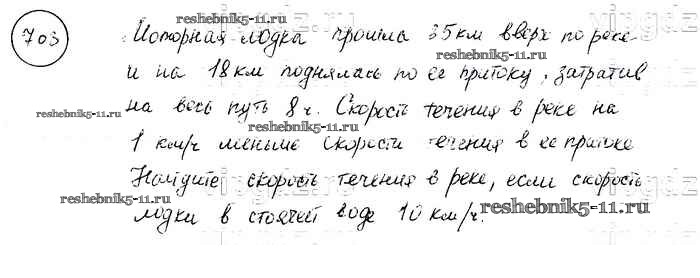 703 Моторная лодка прошла 35 км вверх по реке
и на 18 км поднялась по ее притоку, затратив
на весь путь 8 ч. Скорость течения в реке на
1 км/ч меньше скорости течения в ее притоке
Найдите скорость течения в реке, если скорость
лодки в стоячей воде 10 км/ч.
reshebnik5-11.ru
reshebnik5-11.ru
reshebnik5-11.ru
reshebnik5-11.ru
reshebnik5-11.ru
reshebnik5-11.ru